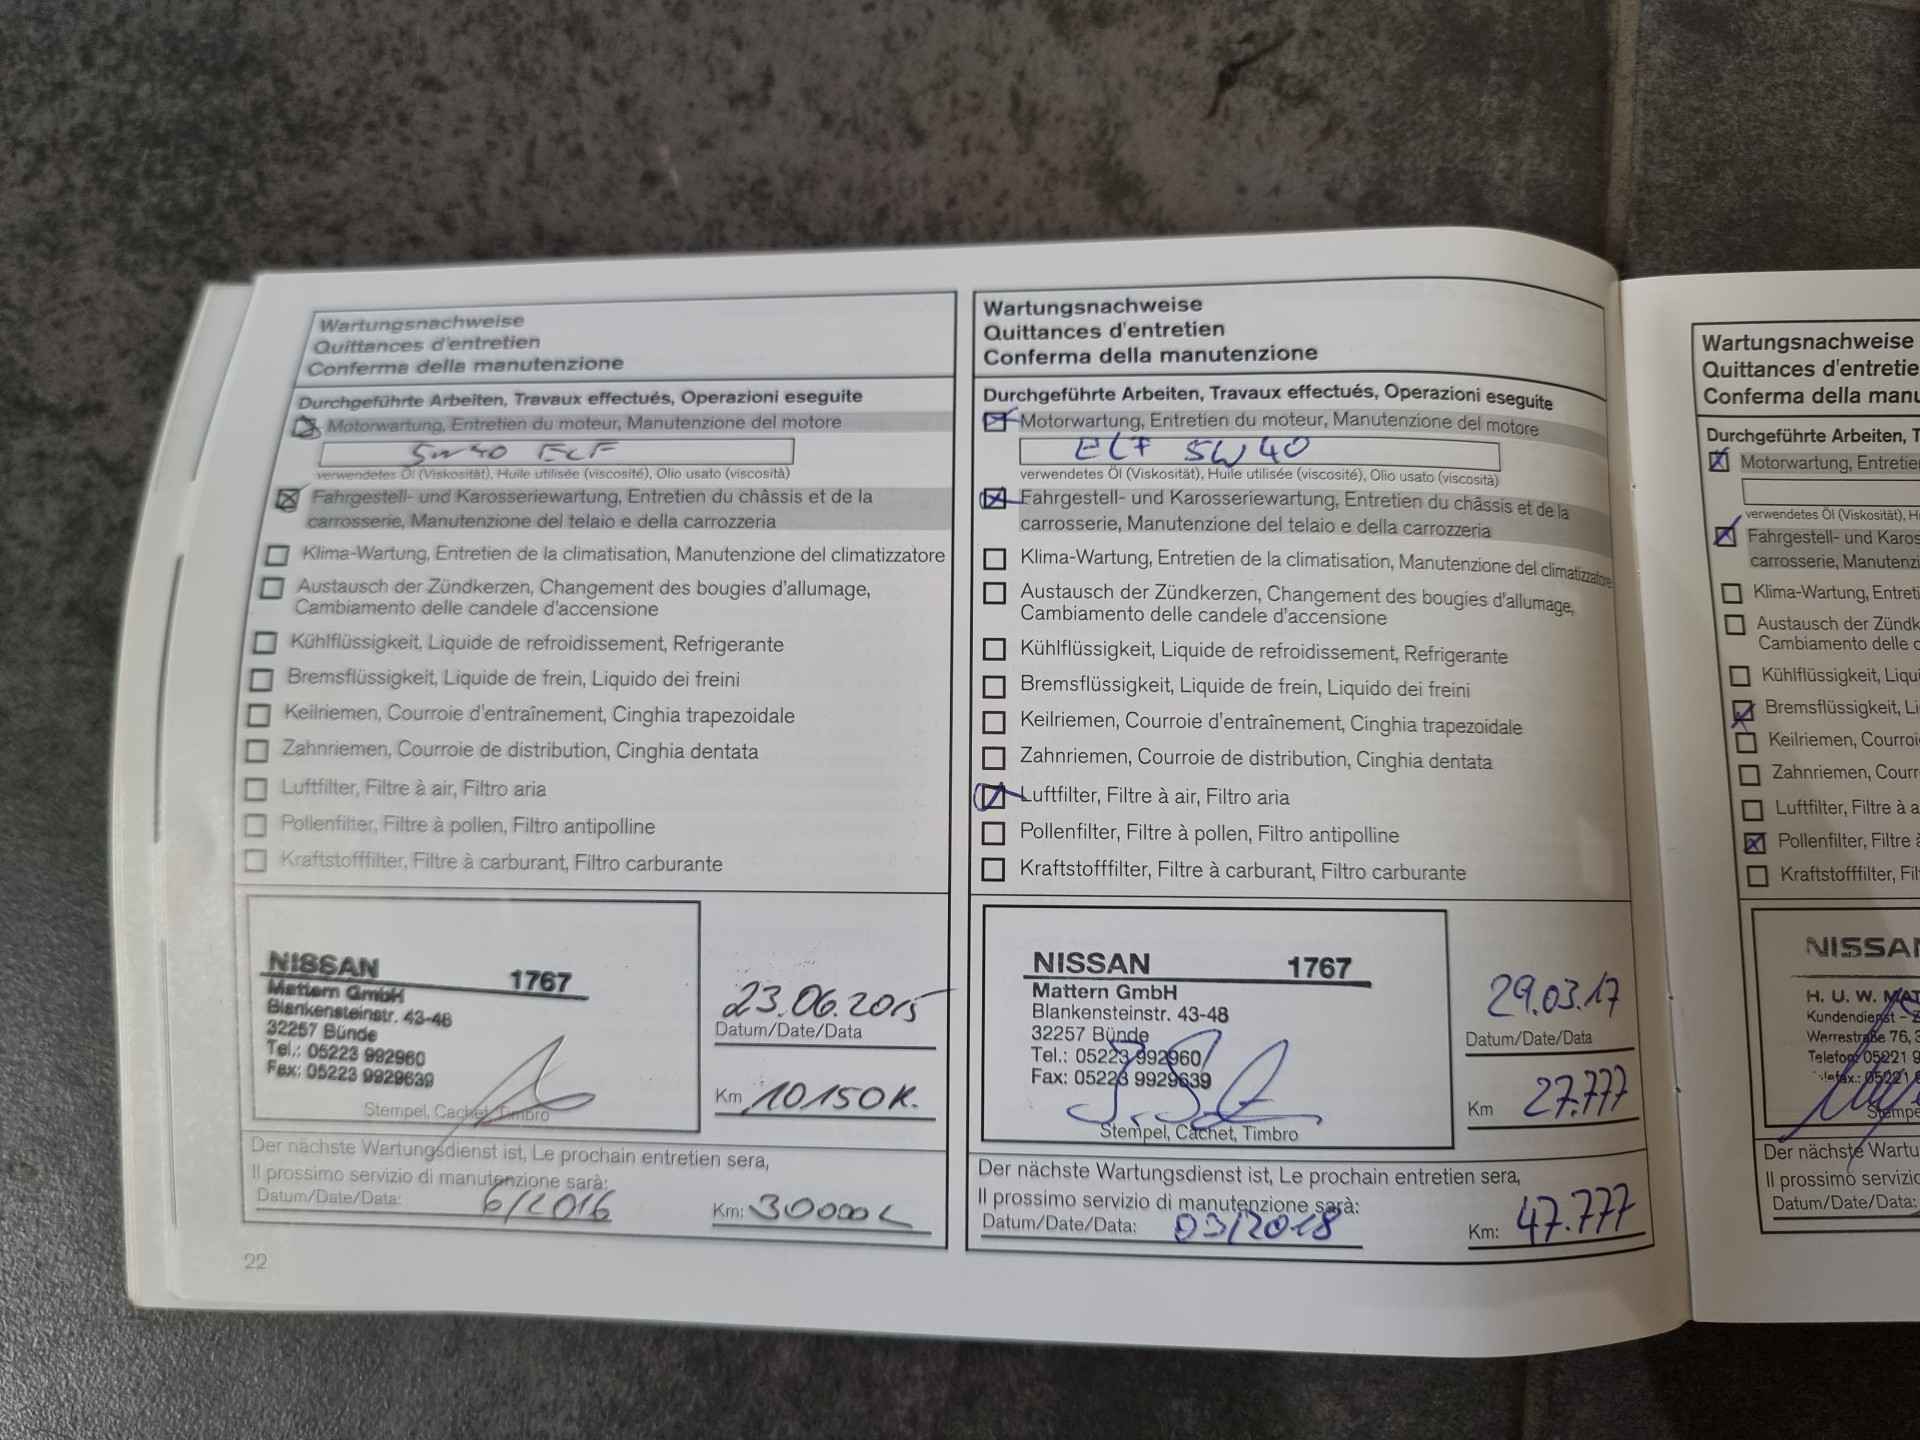 Wartungsnachweise
Quittances d'entretien
Conferma della manutenzione
Durchgeführte Arbeiten, Travaux effectués, Operazioni eseguite
Motorwartung, Entretien du moteur, Manutenzione del motore
5W40 ELF
verwendetes Öl (Viskosität), Huile utilisée (viscosité), Olio usato (viscosità)
Fahrgestell- und Karosseriewartung, Entretien du châssis et de la
carrosserie, Manutenzione del telaio e della carrozzeria
Klima-Wartung, Entretien de la climatisation, Manutenzione del climatizzatore
Austausch der Zündkerzen, Changement des bougies d'allumage,
Cambiamento delle candele d'accensione
Kühlflüssigkeit, Liquide de refroidissement, Refrigerante
Bremsflüssigkeit, Liquide de frein, Liquido dei freini
Keilriemen, Courroie d'entraînement, Cinghia trapezoidale
Zahnriemen, Courroie de distribution, Cinghia dentata
Luftfilter, Filtre à air, Filtro aria
Pollenfilter, Filtre à pollen, Filtro antipolline
Kraftstofffilter, Filtre à carburant, Filtro carburante
NISSAN 1767
Mattern GmbH
Blankensteinstr. 43-48
32257 Bünde
Tel.: 05223 992960
Fax: 05223 9929639
Stempel, Cachet, Timbro
23.06.2015
Datum/Date/Data
Km 10150K.
Der nächste Wartungsdienst ist, Le prochain entretien sera,
Il prossimo servizio di manutenzione sarà:
Datum/Date/Data: 6/2016 Km: 30000
22
Wartungsnachweise
Quittances d'entretien
Conferma della manutenzione
Durchgeführte Arbeiten, Travaux effectués, Operazioni eseguite
Motorwartung, Entretien du moteur, Manutenzione del motore
ELF 5W40
verwendetes Öl (Viskosität), Huile utilisée (viscosité), Olio usato (viscosità)
Fahrgestell- und Karosseriewartung, Entretien du châssis et de la
carrosserie, Manutenzione del telaio e della carrozzeria
Klima-Wartung, Entretien de la climatisation, Manutenzione del climatizzatore
Austausch der Zündkerzen, Changement des bougies d'allumage,
Cambiamento delle candele d'accensione
Kühlflüssigkeit, Liquide de refroidissement, Refrigerante
Bremsflüssigkeit, Liquide de frein, Liquido dei freini
Keilriemen, Courroie d'entraînement, Cinghia trapezoidale
Zahnriemen, Courroie de distribution, Cinghia dentata
Luftfilter, Filtre à air, Filtro aria
Pollenfilter, Filtre à pollen, Filtro antipolline
Kraftstofffilter, Filtre à carburant, Filtro carburante
NISSAN 1767
Mattern GmbH
Blankensteinstr. 43-48
32257 Bünde
Tel.: 05223 992960
Fax: 05223 9929639
Stempel, Cachet, Timbro
29.03.17
Datum/Date/Data
Km 27.777
Der nächste Wartungsdienst ist, Le prochain entretien sera,
Il prossimo servizio di manutenzione sarà:
Datum/Date/Data: 03/2018 Km: 47.777
Wartungsnachweise
Quittances d'entretie
Conferma della manu
Durchgeführte Arbeiten, T
Motorwartung, Entretie
verwendetes Öl (Viskosität), H
Fahrgestell- und Karos
carrosserie, Manutenzi
Klima-Wartung, Entreti
Austausch der Zündk
Cambiamento delle c
Kühlflüssigkeit, Liqu
Bremsflüssigkeit, Li
Keilriemen, Courroi
Zahnriemen, Courr
Luftfilter, Filtre à a
Pollenfilter, Filtre à
Kraftstofffilter, Fil
NISSAN
H. U. W. MAT
Kundendienst - Z
Werrestraße 76, 3
Telefon 05221 9
Telefax.: 05221
Stempe
Der nächste Wartu
Il prossimo servizio
Datum/Date/Data: